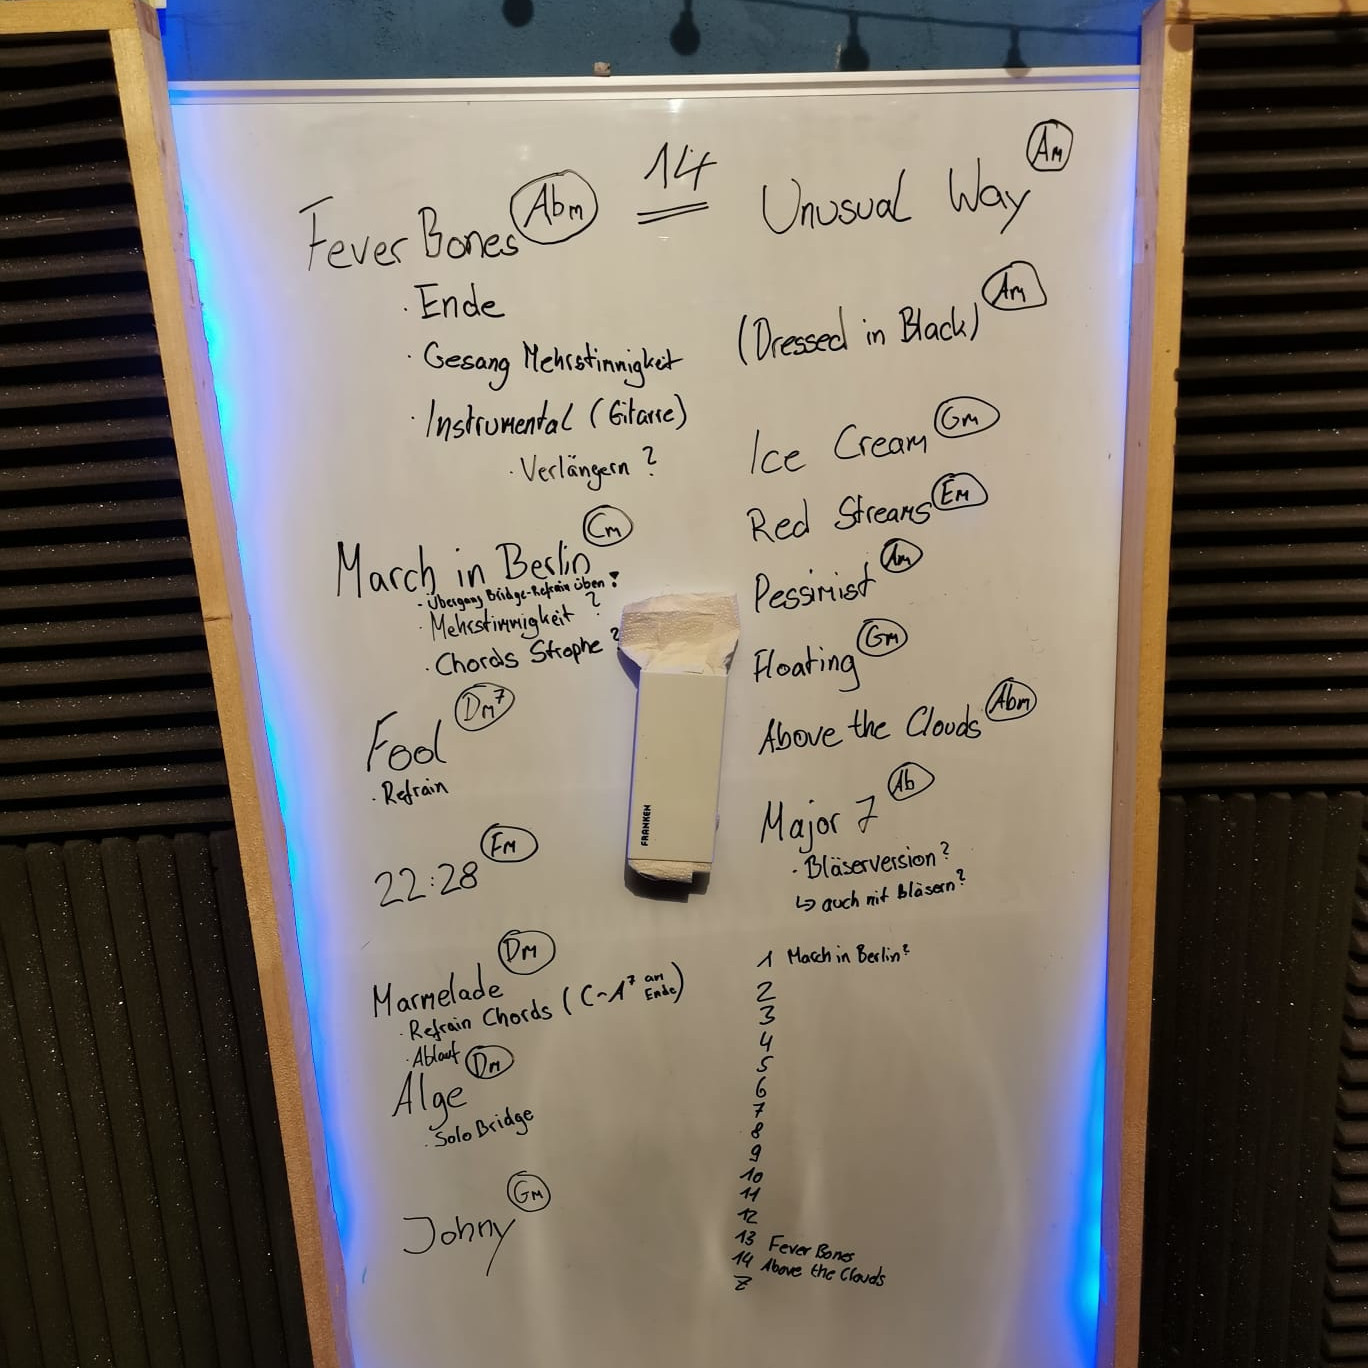 14
Fever Bones Abm
· Ende
· Gesang Mehrstimmigkeit
· Instrumental (Gitarre)
· Verlängern ?
March in Berlin Cm
- Übergang Bridge-Refrain üben !
· Mehrstimmigkeit ?
· Chords Strophe ?
Fool Dm7
· Refrain
22:28 Fm
Marmelade Dm
· Refrain Chords (C-A7 am Ende)
· Ablauf
Alge Dm
· Solo Bridge
Johny Gm
Unusual Way Am
(Dressed in Black) Am
Ice Cream Gm
Red Streams Em
Pessimist Am
Floating Gm
Above the Clouds Abm
Major 7 Ab
· Bläserversion?
↳ auch mit Bläsern?
1 March in Berlin?
2
3
4
5
6
7
8
9
10
11
12
13 Fever Bones
14 Above the Clouds
Z
FRANKEN